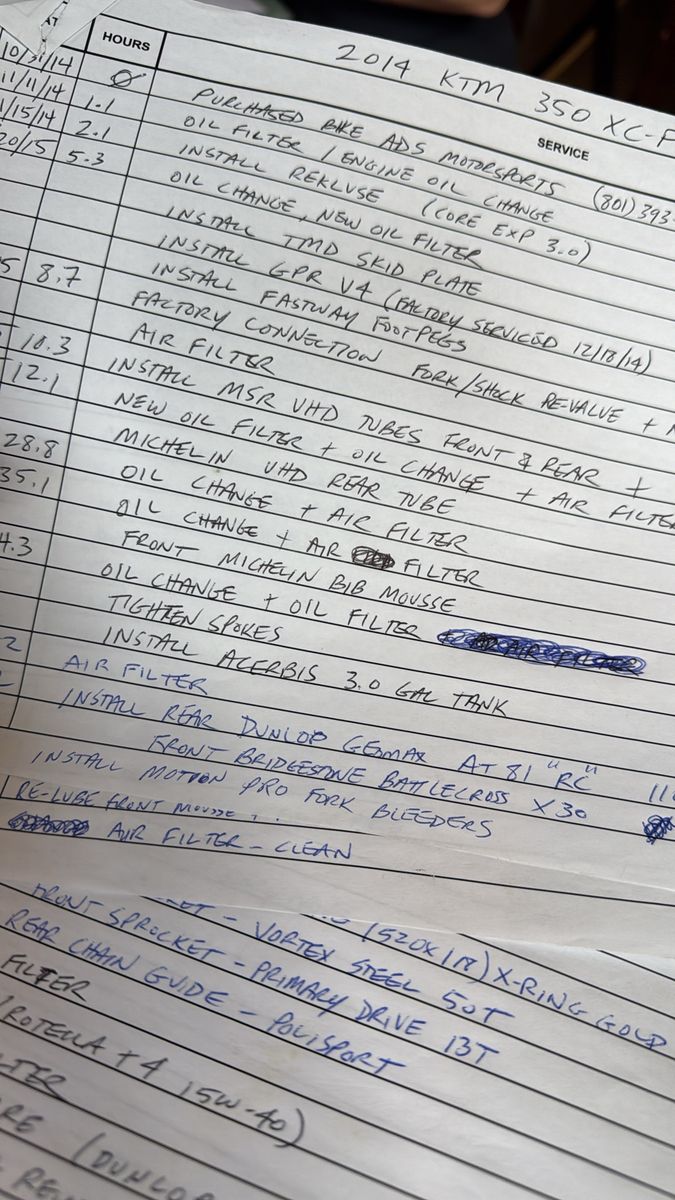 AT HOURS 2014 KTM 350 XC-F
SERVICE
10/31/14 Ø PURCHASED BIKE ADS MOTORSPORTS (801) 393-
11/11/14 1.1 OIL FILTER / ENGINE OIL CHANGE
1/15/14 2.1 INSTALL REKLUSE (CORE EXP 3.0)
20/15 5.3 OIL CHANGE, NEW OIL FILTER
INSTALL TMD SKID PLATE
INSTALL GPR V4 (FACTORY SERVICED 12/18/14)
INSTALL FASTWAY FOOTPEGS
5 8.7 FACTORY CONNECTION FORK/SHOCK RE-VALVE +
AIR FILTER
10.3 INSTALL MSR UHD TUBES FRONT & REAR +
12.1 NEW OIL FILTER + OIL CHANGE + AIR FILTER
MICHELIN UHD REAR TUBE
28.8 OIL CHANGE + AIR FILTER
35.1 OIL CHANGE + AIR FILTER
FRONT MICHELIN BIB MOUSSE
4.3 OIL CHANGE + OIL FILTER
TIGHTEN SPOKES
INSTALL ACERBIS 3.0 GAL TANK
2 AIR FILTER
INSTALL REAR DUNLOP GEOMAX AT 81 "RC" 110
FRONT BRIDGESTONE BATTLECROSS X30
INSTALL MOTION PRO FORK BLEEDERS
RE-LUBE FRONT MOUSSE...
AIR FILTER - CLEAN
(520X118) X-RING GOLD
- VORTEX STEEL 50T
FRONT SPROCKET - PRIMARY DRIVE 13T
REAR CHAIN GUIDE - POLISPORT
FILTER
ROTELLA T4 15W-40)
(DUNLOP